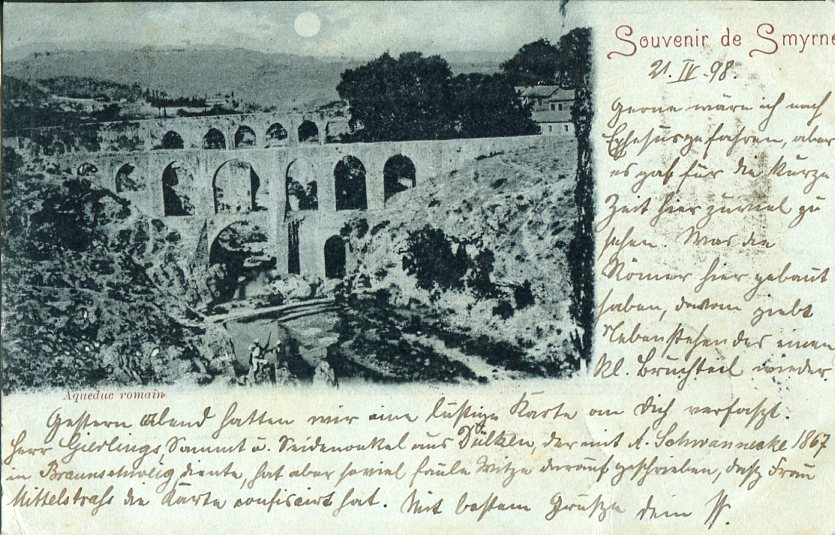 Souvenir de Smyrne
21. IV. 98.
Gerne wäre ich nach
Ephesus gefahren, aber
es gab für die kurze
Zeit hier zuviel zu
sehen. Was die
Römer hier gebaut
haben, davon giebt
Nebenstehendes einen
kl. Bruchteil wieder.
Aqueduc romain
Gestern Abend hatten wir eine lustige Karte an Dich verfaszt.
Herr Gierlings, Sammt u. Seidenonkel aus Dülken, der mit A. Schwannecke 1867
in Braunschweig diente, hat aber soviel faule Witze darauf geschrieben, dasz Frau
Mittelstrasz die Karte confiscirt hat. Mit bestem Grusze Dein